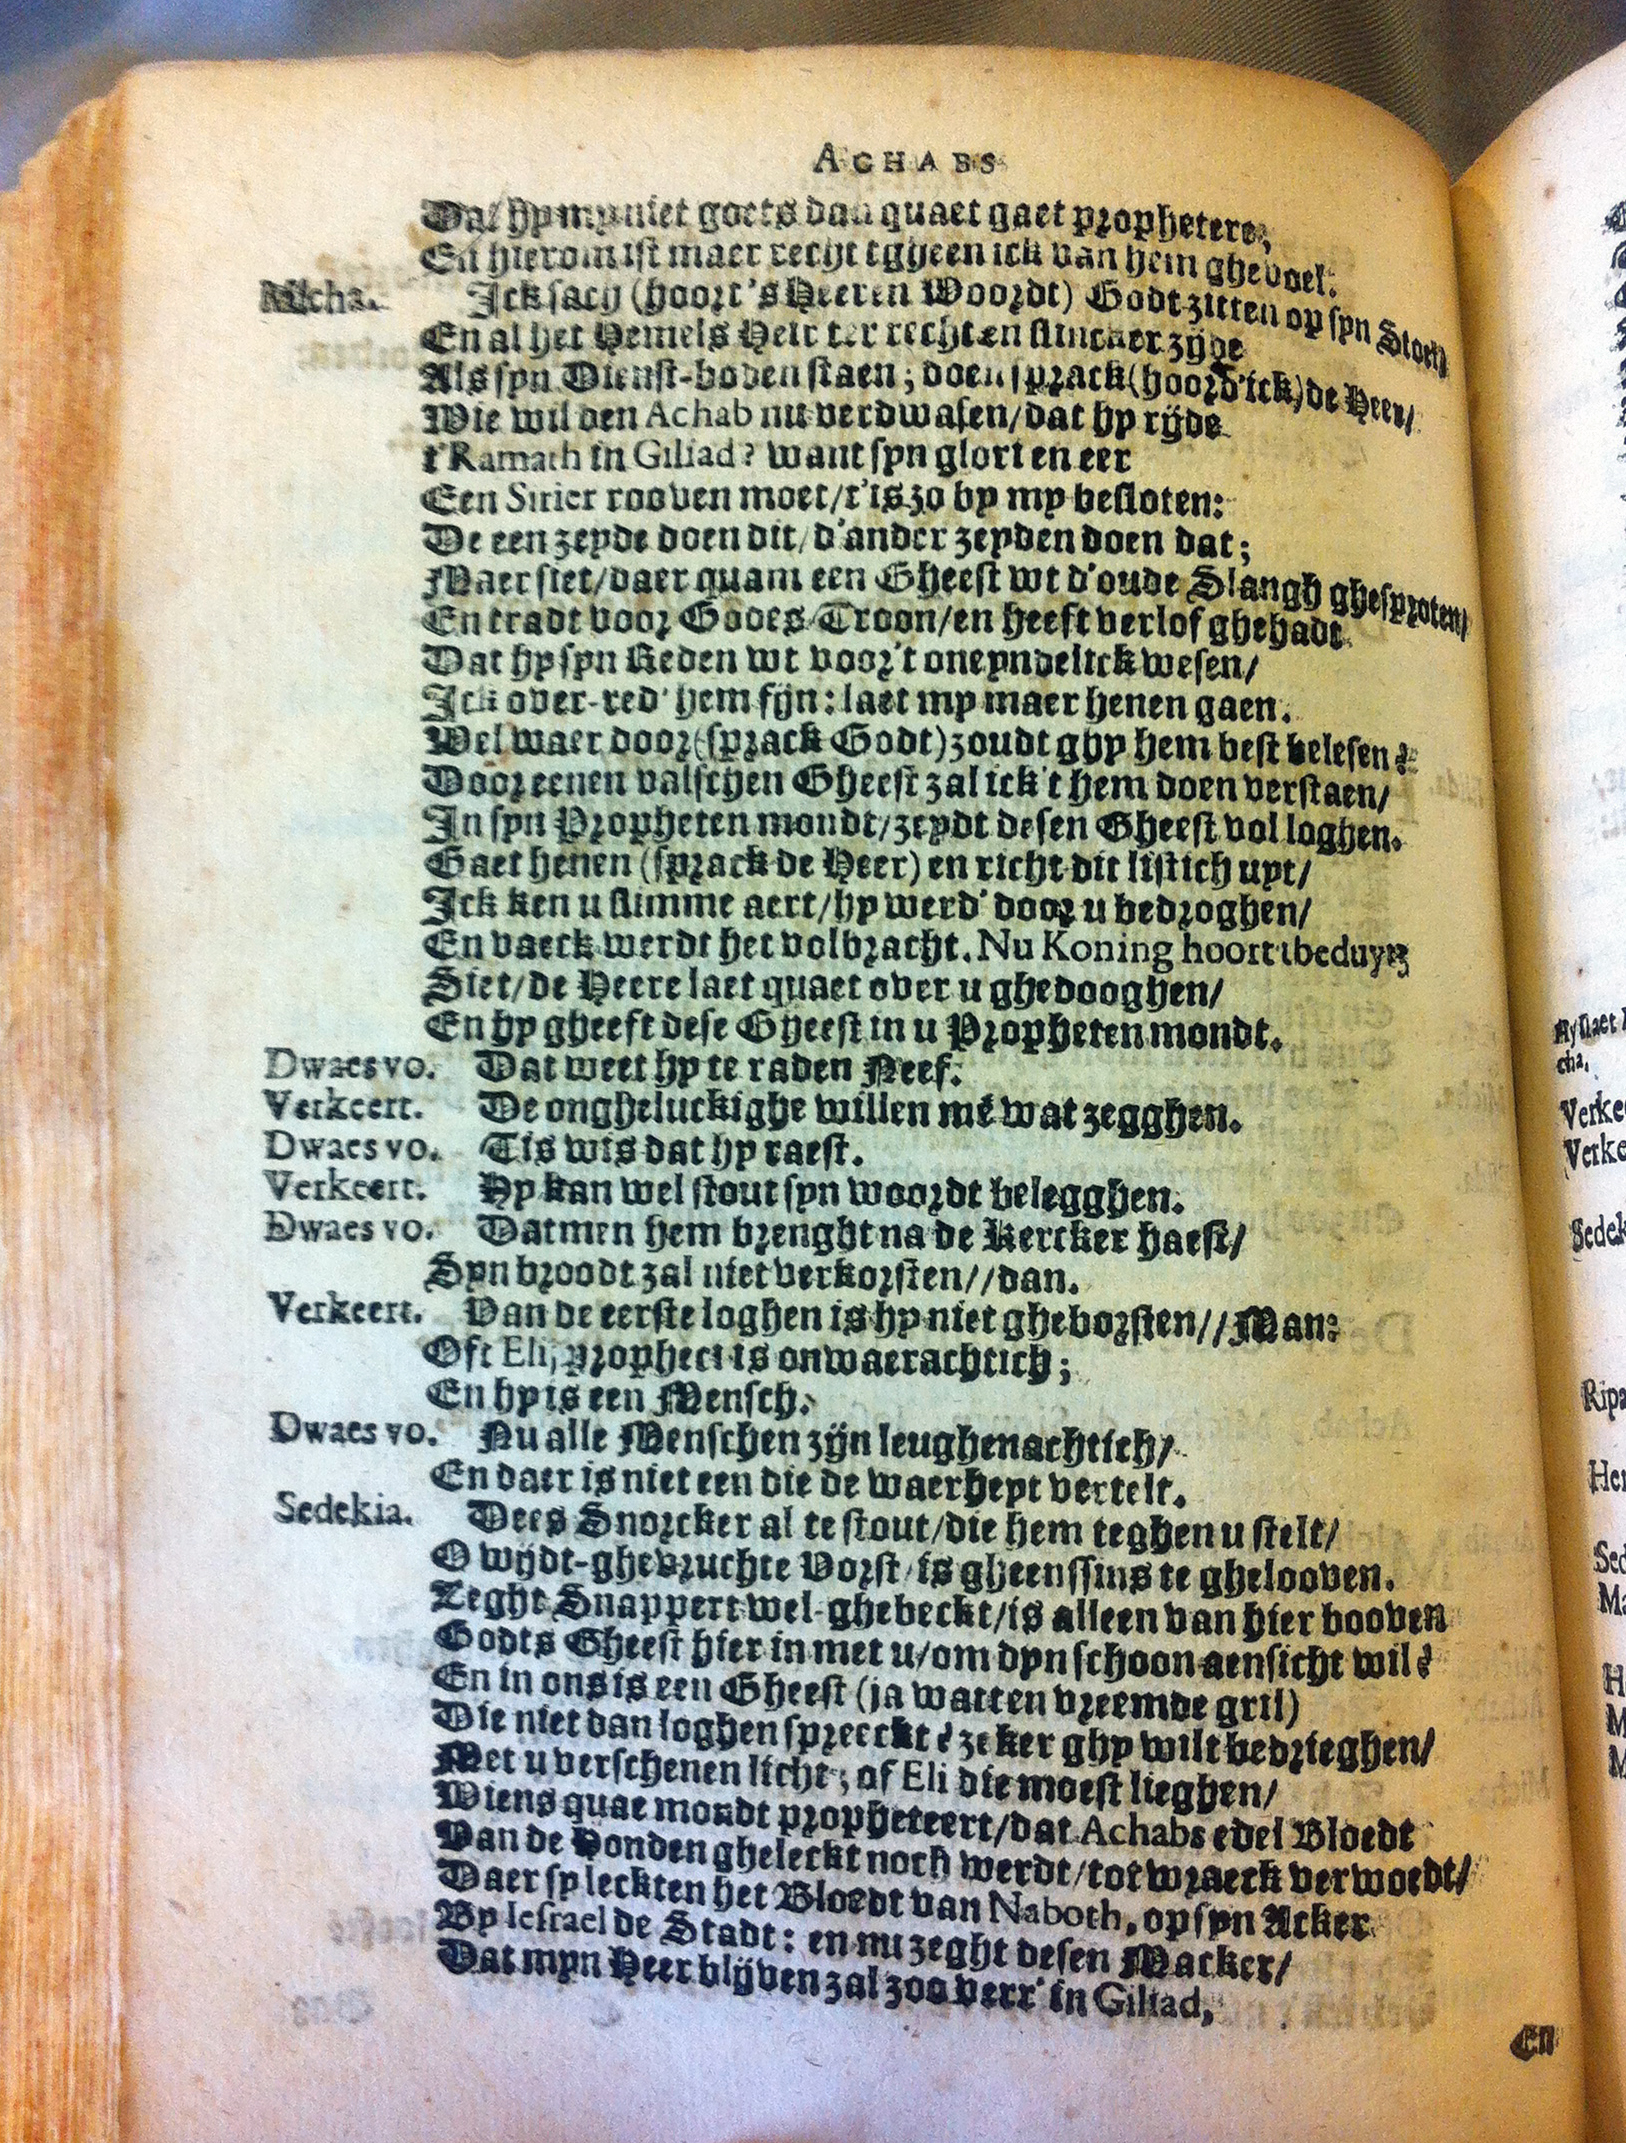 ACHABS
Dat hy my niet goets dan quaet gaet propheteren,
En hierom ist maer recht tgheen ick van hem ghevoel.
Micha. Ick sach (hoort 's Heeren Woordt) Godt zitten op syn Stoel,
En al het Hemels Heir ter rechten slincker zijde
Als syn Dienst-boden staen; doen sprack (hoord' ick) de Heer/
Wie wil den Achab nu verdwasen/ dat hy rijde
t'Ramath in Giliad? want syn glori en eer
Een Sirier rooven moet/ t'is zo by my besloten:
De een zeyde doen dit/ d'ander zeyden doen dat;
Maer siet/ daer quam een Gheest wt d'oude Slangh ghesproten/
En tradt voor Godes Troon/ en heeft verlof ghehadt
Dat hy syn Reden wt voor't oneyndelick wesen/
Ick over-red' hem fijn: laet my maer henen gaen.
Wel waer door (sprack Godt) zoudt ghy hem best belesen?
Door eenen valschen Gheest zal ick't hem doen verstaen/
In syn Propheten mondt/ zeydt desen Gheest vol loghen.
Gaet henen (sprack de Heer) en richt dit listich uyt/
Ick ken u slimme aert/ hy werd' door u bedroghen/
En vaeck werdt het volbracht. Nu Koning hoort tbeduyt;
Siet/ de Heere laet quaet over u ghedooghen/
En hy gheeft dese Gheest in u Propheten mondt.
Dwaes vo. Dat weet hy te raden Neef.
Verkeert. De ongheluckighe willen mé wat zegghen.
Dwaes vo. Tis wis dat hy raest.
Verkeert. Hy kan wel stout syn woordt belegghen.
Dwaes vo. Datmen hem brenght na de Kercker haest/
Syn broodt zal niet verkorsten// dan.
Verkeert. Van de eerste loghen is hy niet gheborsten// Man:
Oft Eli, prophect is onwaerachtich;
En hy is een Mensch.
Dwaes vo. Nu alle Menschen zijn leughenachtich/
En daer is niet een die de waerheyt vertelt.
Sedekia. Dees Snorcker al te stout/ die hem teghen u stelt/
O wijdt-ghevruchte Vorst/ is gheenssins te ghelooven.
Zeght Snappert wel-ghebeckt/ is alleen van hier booven
Godts Gheest hier in met u/ om dyn schoon aensicht wil?
En in ons is een Gheest (ja wat ten vreemde gril)
Die niet dan loghen spreeckt? zeker ghy wilt bedrieghen/
Met u verschenen licht; of Eli die moest lieghen/
Wiens quae mondt propheteert/ dat Achabs edel Bloedt
Van de Honden gheleckt noch werdt/ tot wraeck verwoedt/
Daer sy leckten het Bloedt van Naboth, op syn Acker
By Iesrael de Stadt: en nu zeght desen Macker/
Dat myn Heer blijven zal zoo verr' in Giliad,
En